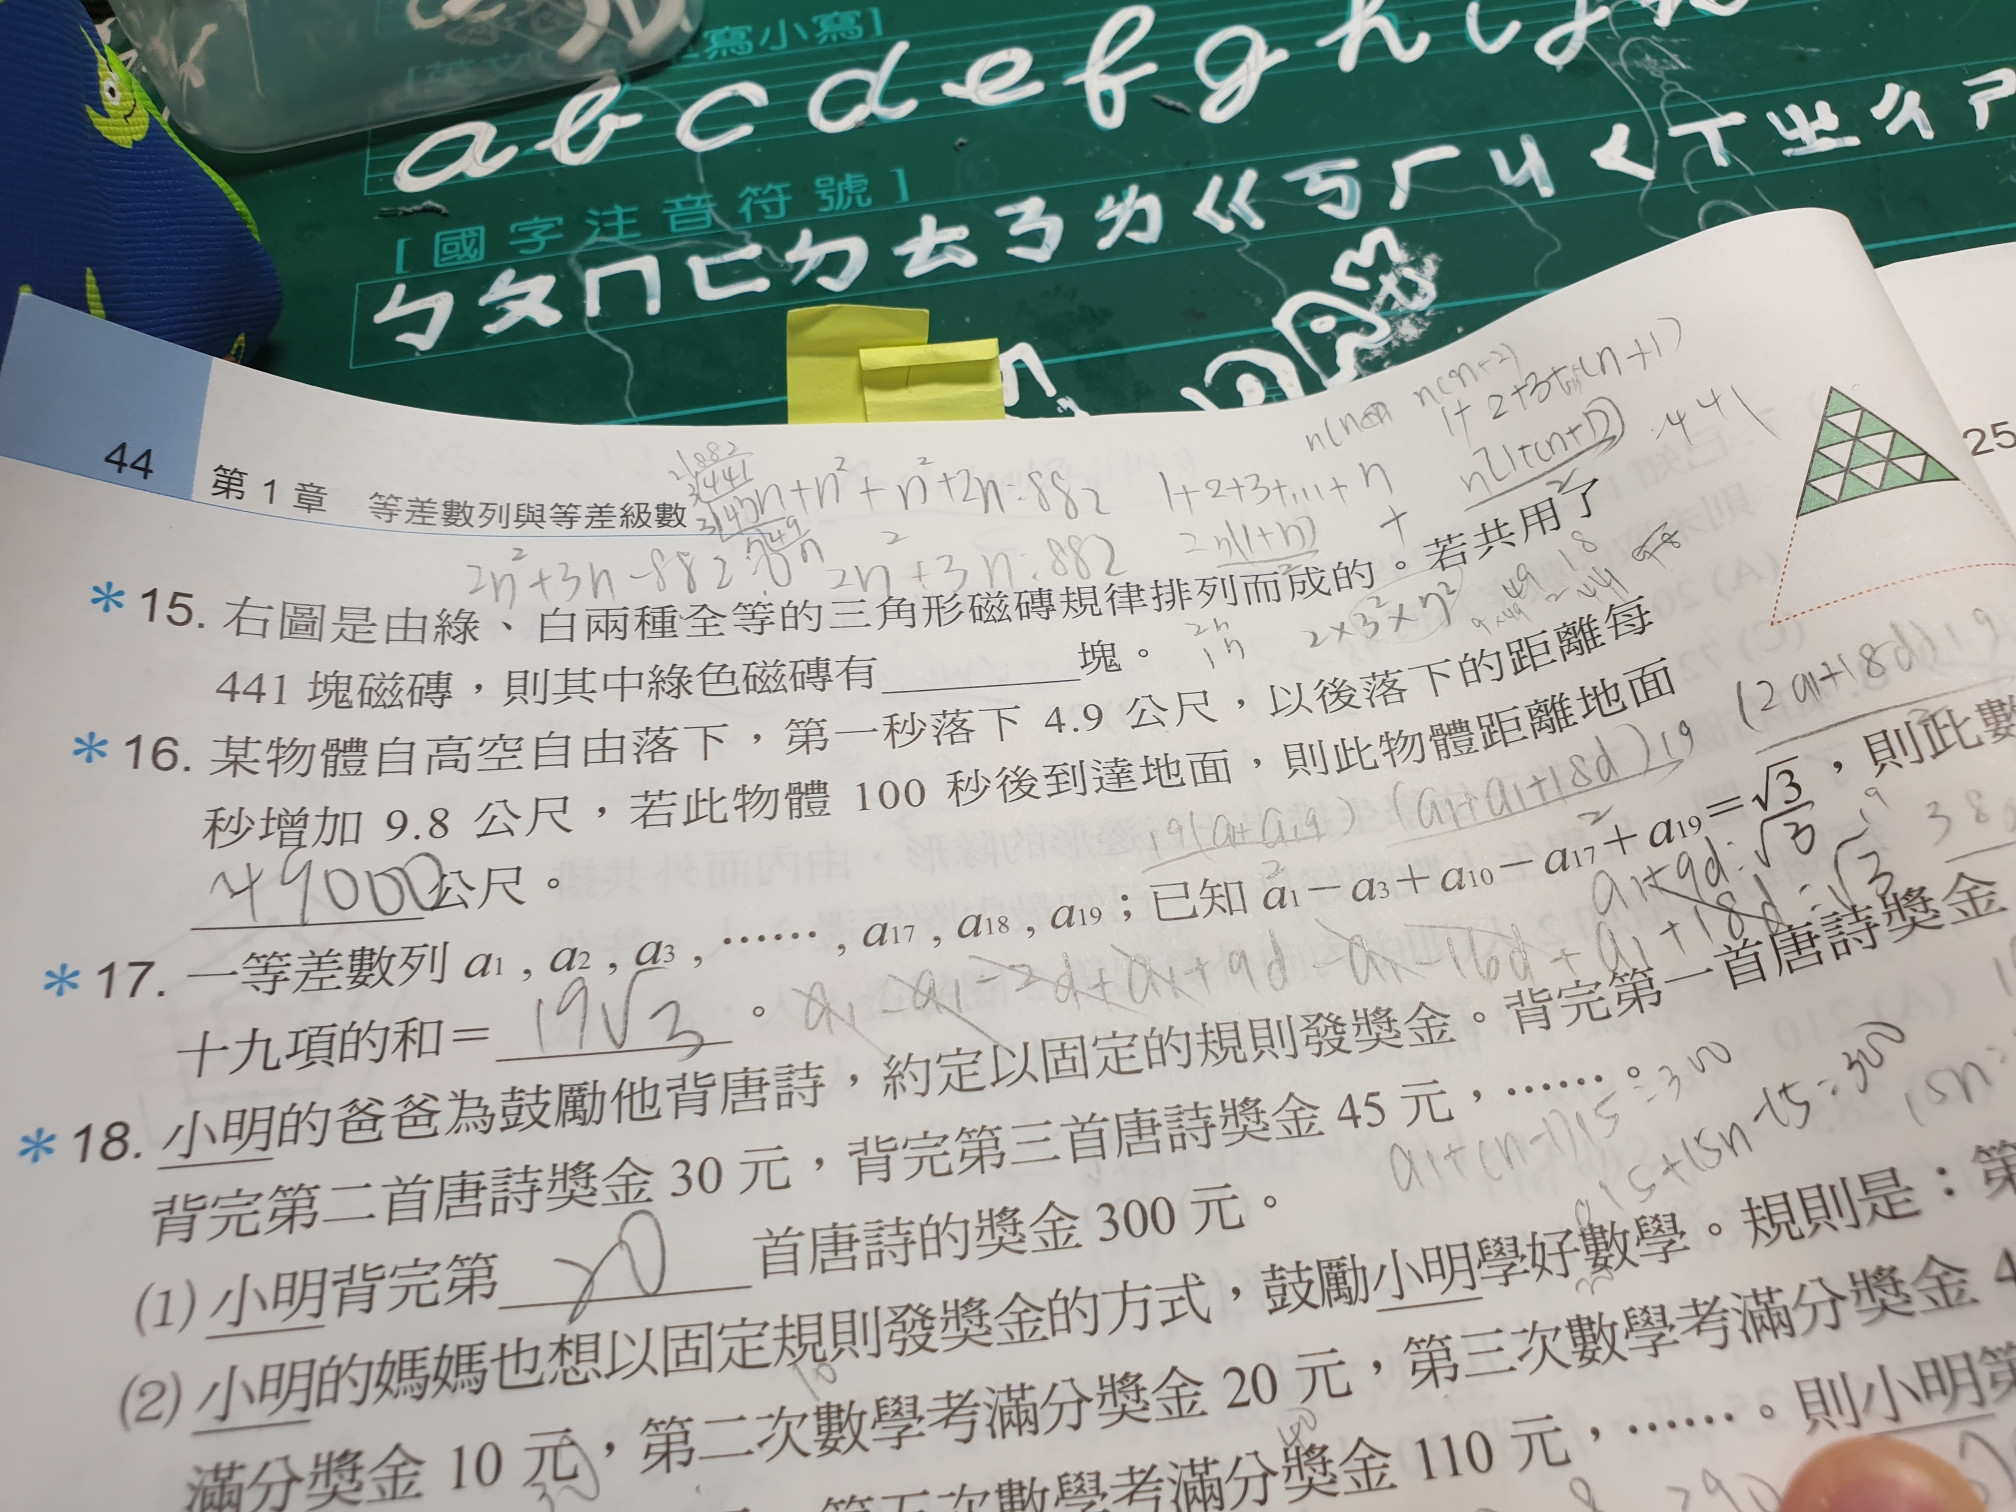 寫小寫]
a b c d e f g h i j k
[國字注音符號]
ㄅㄆㄇㄈㄉㄊㄋㄌㄍㄎㄏㄐㄑㄒㄓㄔㄕ
n(n+2)
1+2+3+...+(n+1)
44 第 1 章 等差數列與等差級數
n+n²+n²+2n=882 1+2+3+...+n n(1+(n+1)) 441
2n²+3n-882=0 2n²+3n=882
25
*15. 右圖是由綠、白兩種全等的三角形磁磚規律排列而成的。若共用了
441 塊磁磚,則其中綠色磁磚有 塊。
2×3²×7²
*16. 某物體自高空自由落下,第一秒落下 4.9 公尺,以後落下的距離每
秒增加 9.8 公尺,若此物體 100 秒後到達地面,則此物體距離地面
49000 公尺。
19(a₁+a₁₉) (a₁+a₁+18d)19 (2a₁+18d)19
*17. 一等差數列 a₁ , a₂ , a₃ , …… , a₁₇ , a₁₈ , a₁₉;已知 a₁-a₃+a₁₀-a₁₇+a₁₉=√3,則此數
a₁+9d=√3
十九項的和= 19√3 。
a₁-a₁-2d+a₁+9d-a₁-16d+a₁+18d=√3
*18. 小明的爸爸為鼓勵他背唐詩,約定以固定的規則發獎金。背完第一首唐詩獎金
背完第二首唐詩獎金 30 元,背完第三首唐詩獎金 45 元,……。
a₁+(n-1)15=300
15+15n-15=300
15n=
(1) 小明背完第 20 首唐詩的獎金 300 元。
(2) 小明的媽媽也想以固定規則發獎金的方式,鼓勵小明學好數學。規則是:第
滿分獎金 10 元,第二次數學考滿分獎金 20 元,第三次數學考滿分獎金 4
第五次數學考滿分獎金 110 元,……。則小明第